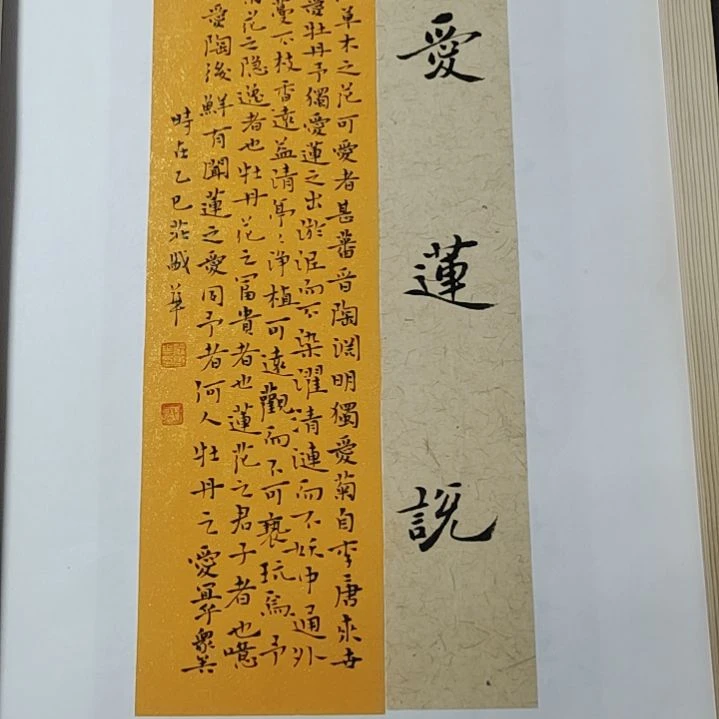 愛蓮說
草木之花可愛者甚蕃晉陶渊明獨愛菊自李唐來世
愛牡丹予獨愛蓮之出淤泥而不染濯清漣而不妖中通外
蔓不枝香遠益清亭〻淨植可遠觀而不可褻玩焉予
花之隐逸者也牡丹花之富貴者也蓮花之君子者也噫
愛陶後鮮有聞蓮之愛同予者何人牡丹之愛宜乎眾矣
時在乙巳莊